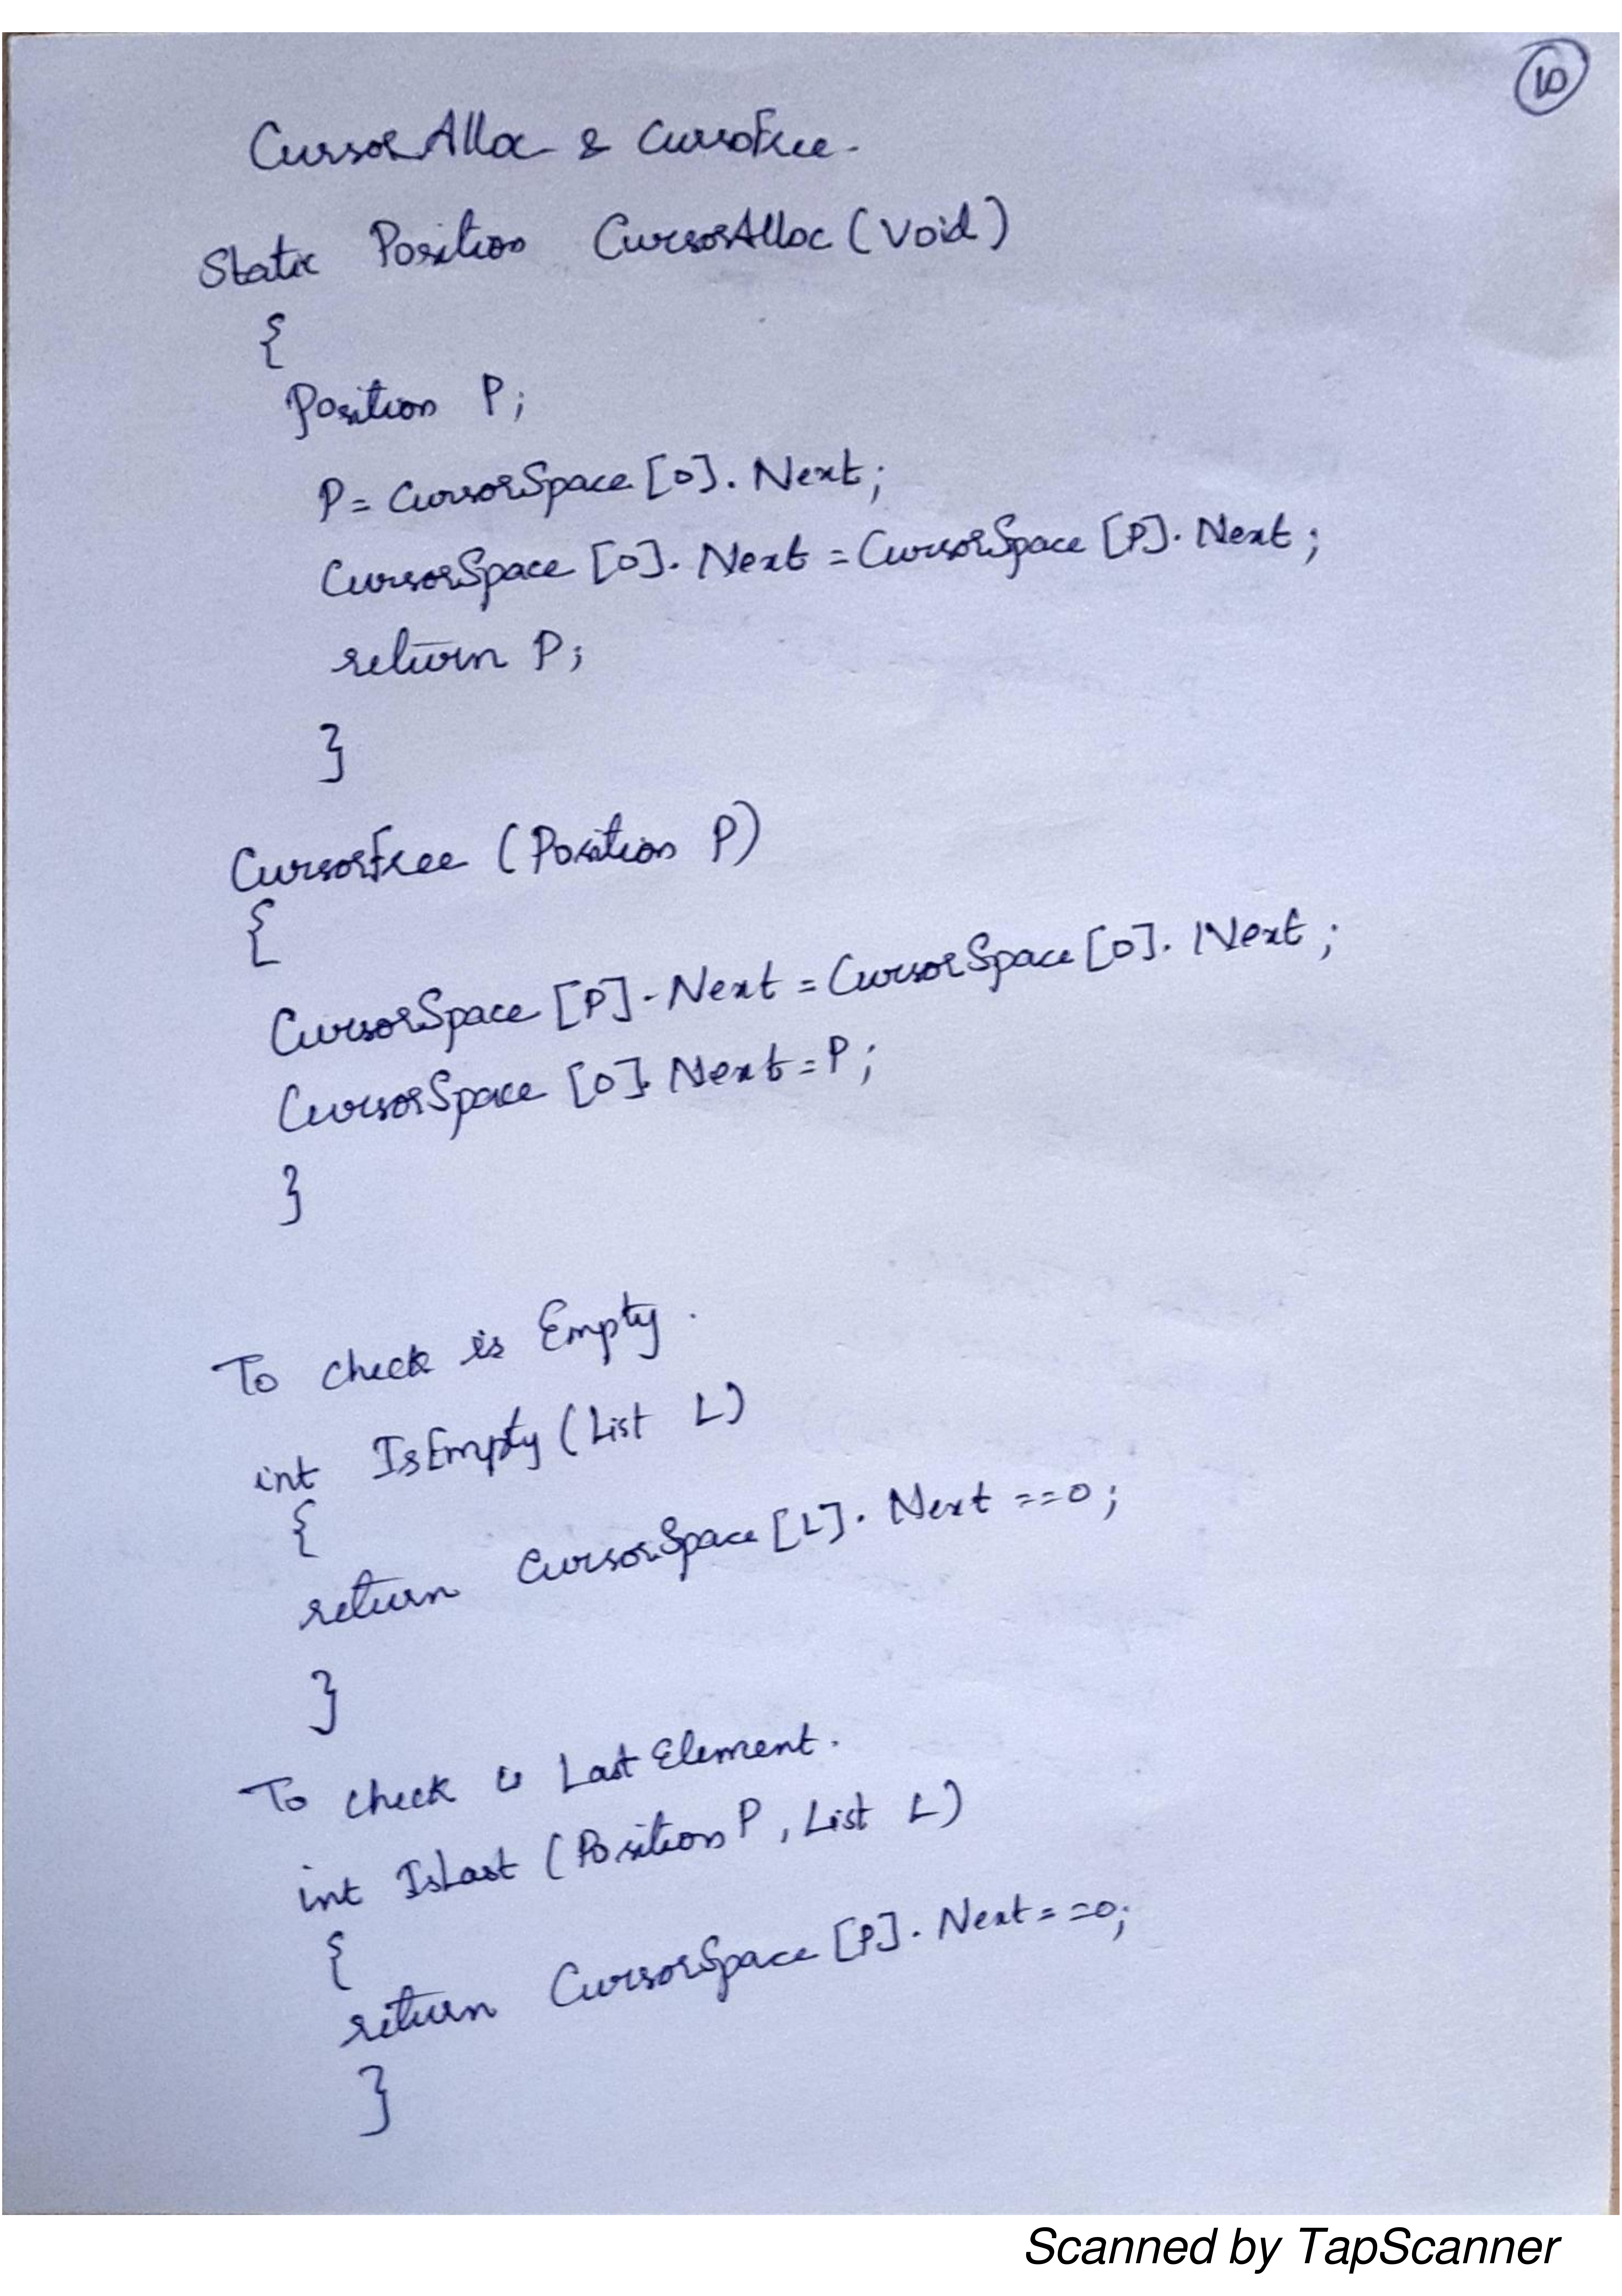 10
CursorAlloc & CursoFree.
Static Position CursorAlloc (Void)
{
Position P;
P = CursorSpace [0]. Next;
CursorSpace [0]. Next = CursorSpace [P]. Next;
return P;
}
CursorFree (Position P)
{
CursorSpace [P]. Next = CursorSpace [0]. Next;
CursorSpace [0]. Next = P;
}
To check is Empty.
int IsEmpty (List L)
{
return CursorSpace [L]. Next == 0;
}
To check is Last Element.
int IsLast (Position P, List L)
{
return CursorSpace [P]. Next == 0;
}
Scanned by TapScanner